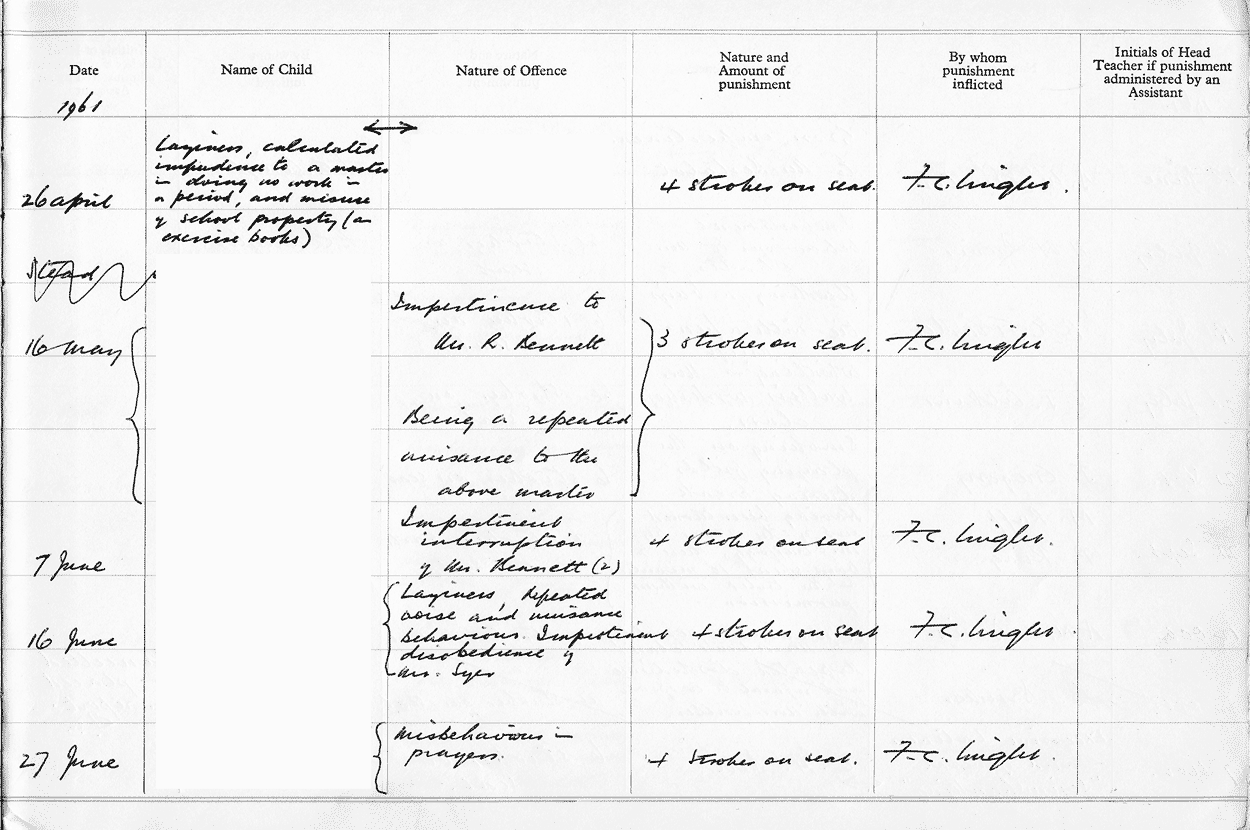 Date
Name of Child
Nature of Offence
Nature and
Amount of
punishment
By whom
punishment
inflicted
Initials of Head
Teacher if punishment
administered by an
Assistant
1961
26 April
Laziness, calculated
impudence to a master
in doing no work in
a period, and misuse
of school property (an
exercise books)
4 strokes on seat.
F.C.
16 May
Impertinence to
Mr. R. Bennett
Being a repeated
nuisance to the
above master
3 strokes on seat.
F.C.
7 June
Impertinent
interruption
of Mr. Bennett (2)
4 strokes on seat
F.C.
16 June
Laziness, repeated
noise and nuisance
behaviour. Impertinent
disobedience of
Mr. Syer
4 strokes on seat
F.C.
27 June
Misbehaviour in
prayers.
4 strokes on seat.
F.C.